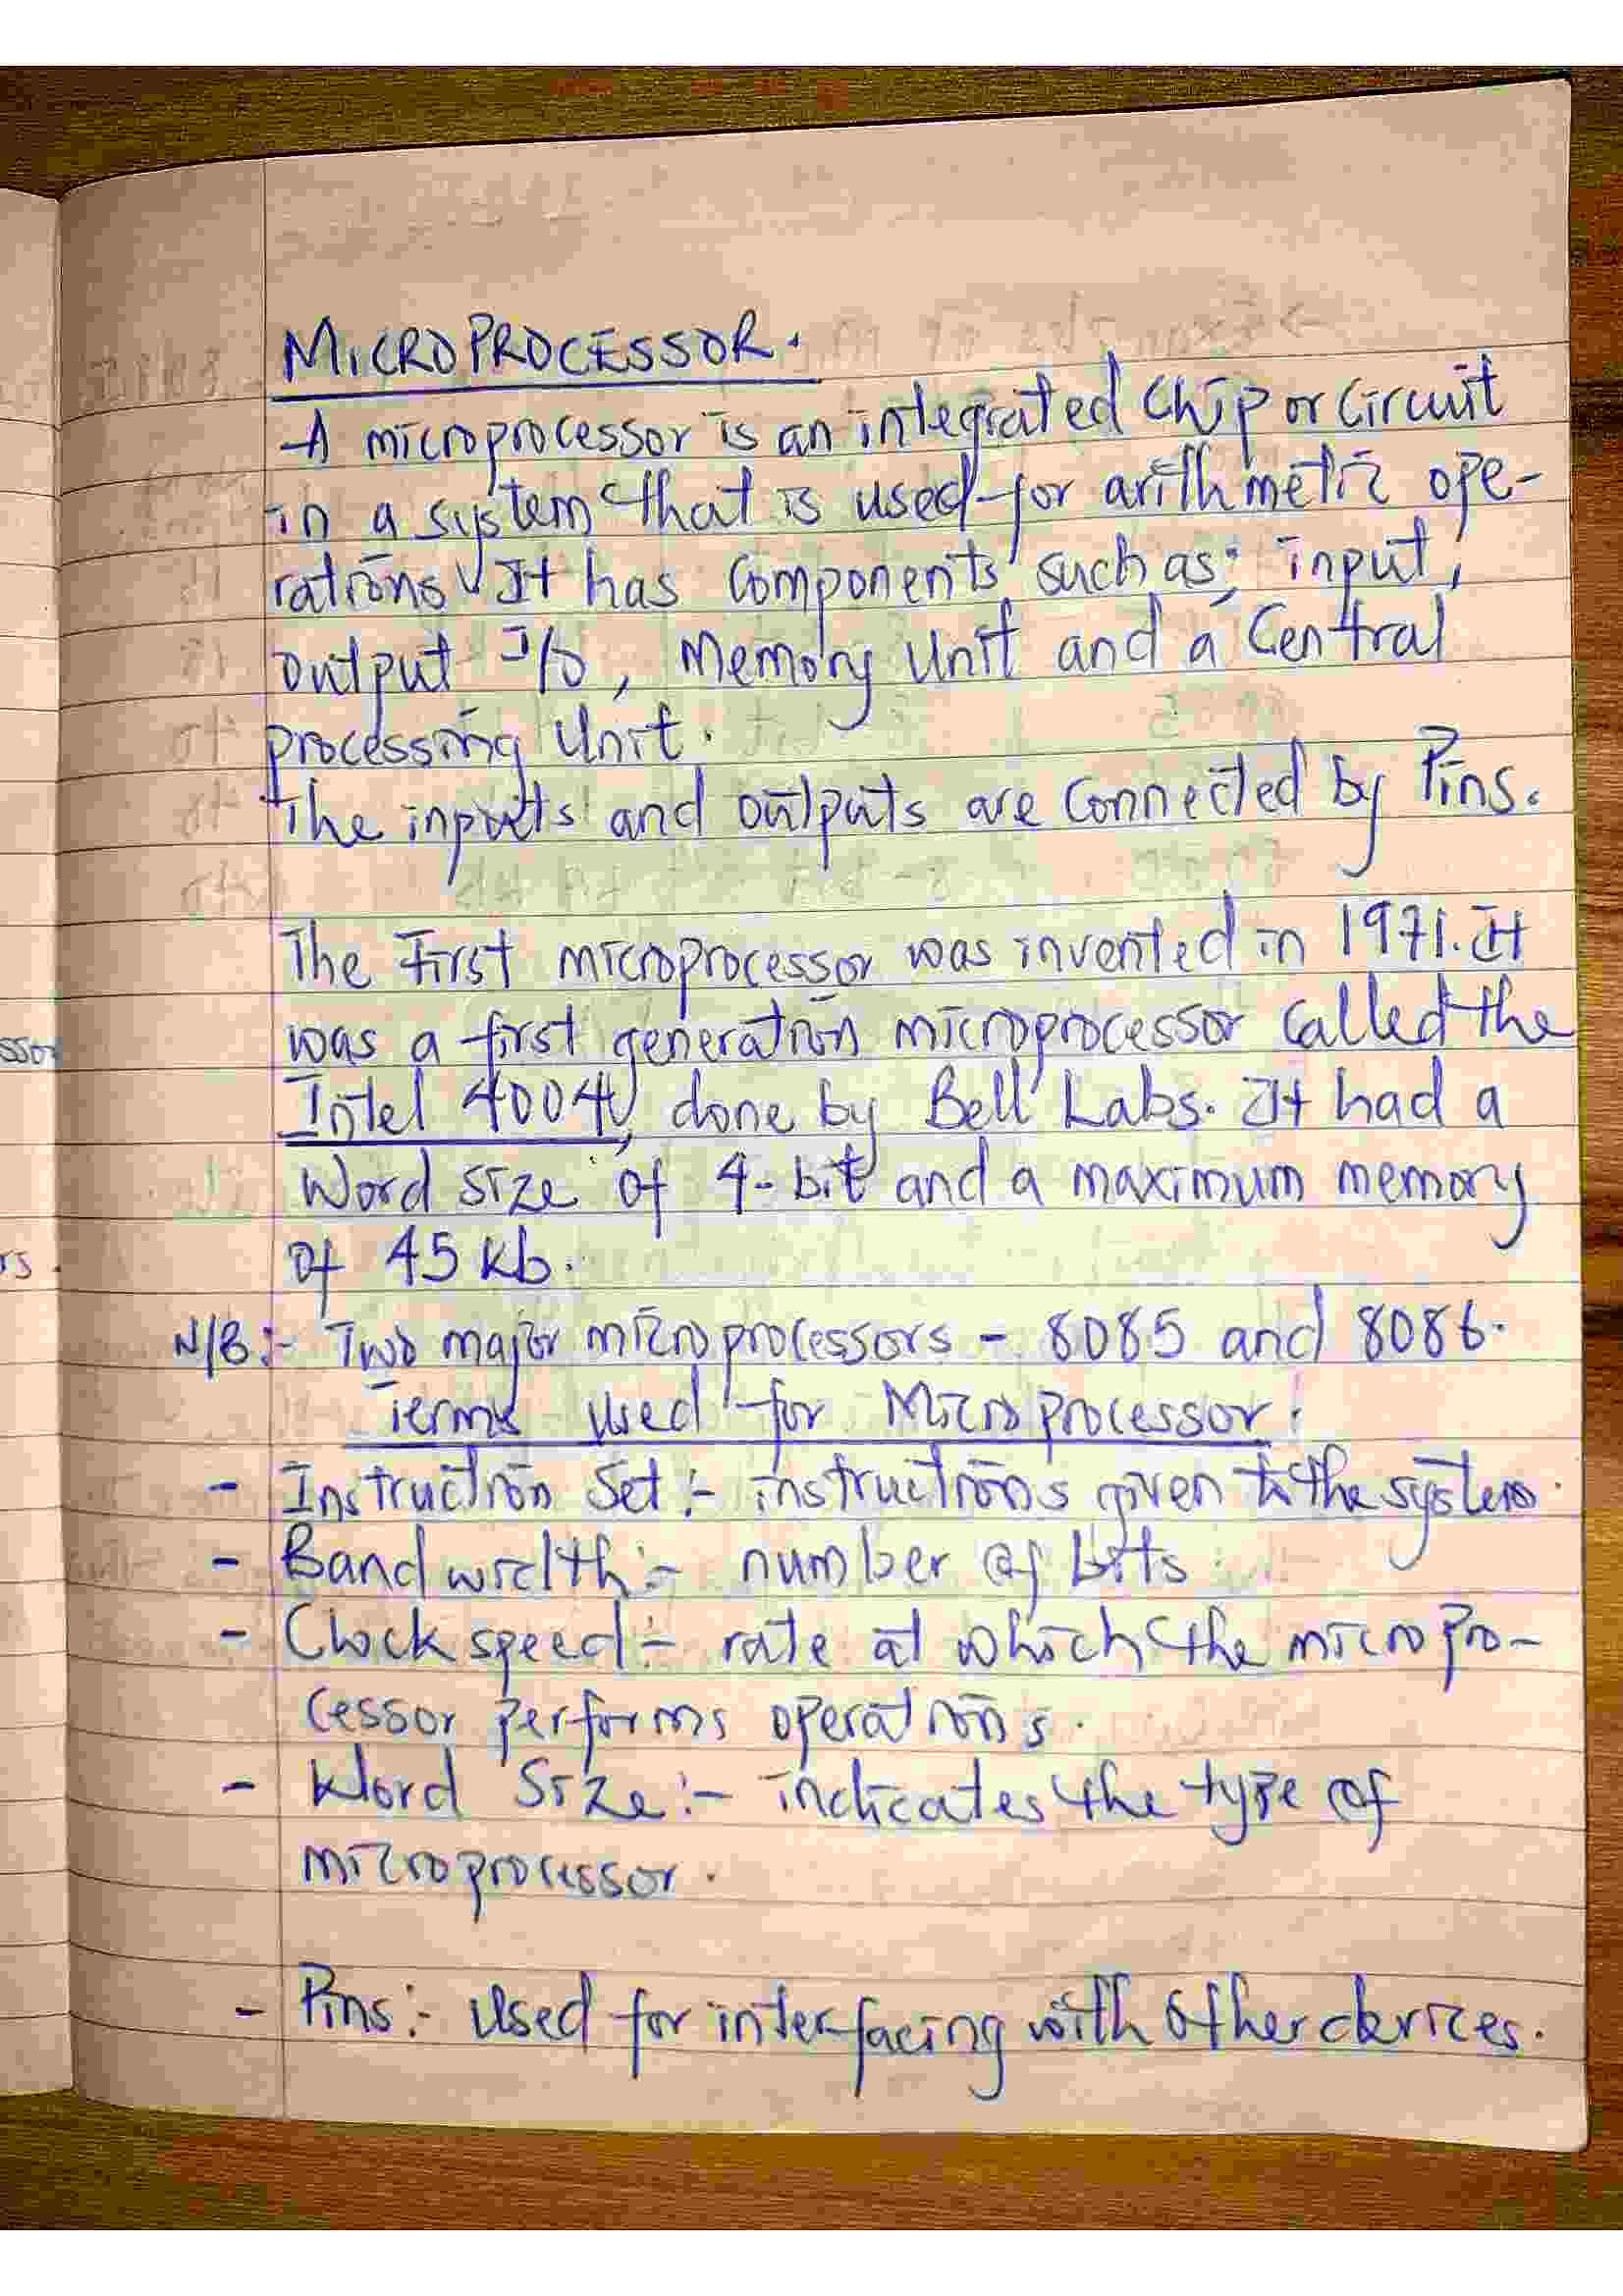 MICROPROCESSOR.
A microprocessor is an integrated chip or circuit
in a system that is used for arithmetic ope-
rations. It has components such as; input,
output I/O, memory unit and a Central
processing Unit.
The inputs and outputs are connected by Pins.
The First microprocessor was invented in 1971. It
was a first generation microprocessor called the
Intel 4004, done by Bell Labs. It had a
Word size of 4-bit and a maximum memory
of 45 kb.
N/B:- Two major microprocessors - 8085 and 8086.
Terms used for Microprocessor.
- Instruction Set :- instructions given to the system.
- Bandwidth :- number of bits.
- Clock speed :- rate at which the micropro-
cessor performs operations.
- Word Size :- indicates the type of
microprocessor.
- Pins :- Used for interfacing with other devices.